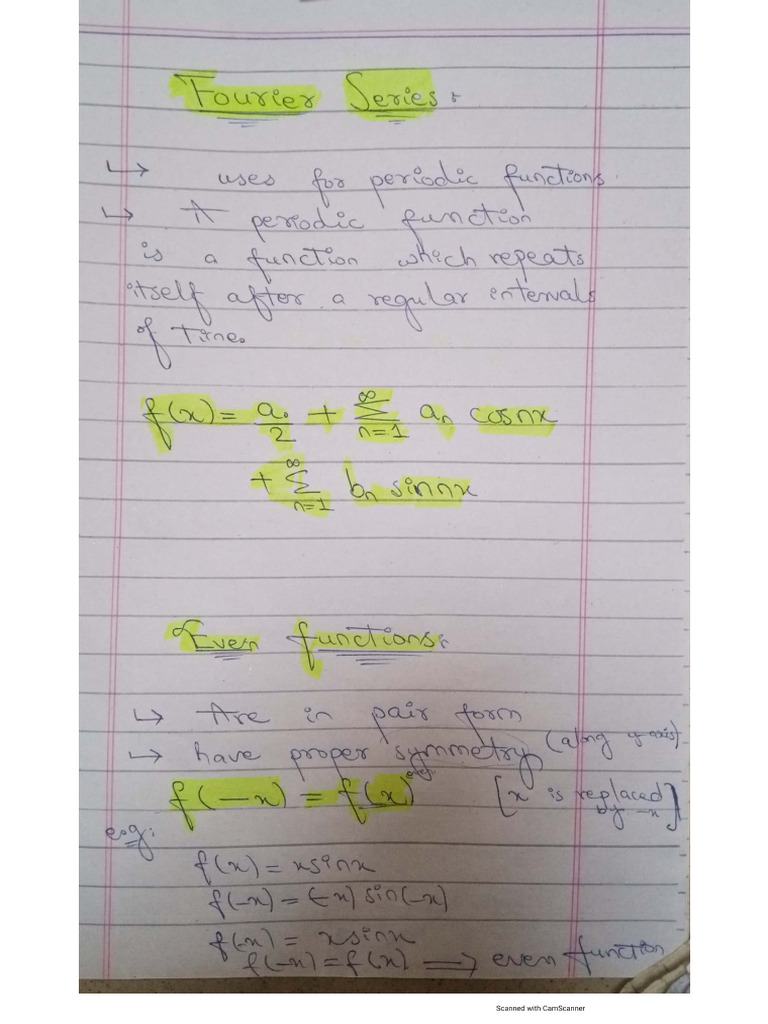 Fourier Series:
↳ uses for periodic functions.
↳ A periodic function
is a function which repeats
itself after a regular intervals
of Time.
f(x) = a₀/2 + ∞ Σ n=1 aₙ cosnx
+ ∞ Σ n=1 bₙ sinnx
Even functions:
↳ Are in pair form
↳ have proper symmetry (along y-axis)
f(-x) = f(x) [x is replaced by -x]
e.g:
f(x) = xsinx
f(-x) = (-x) sin(-x)
f(-x) = xsinx
f(-x) = f(x) → even function
Scanned with CamScanner